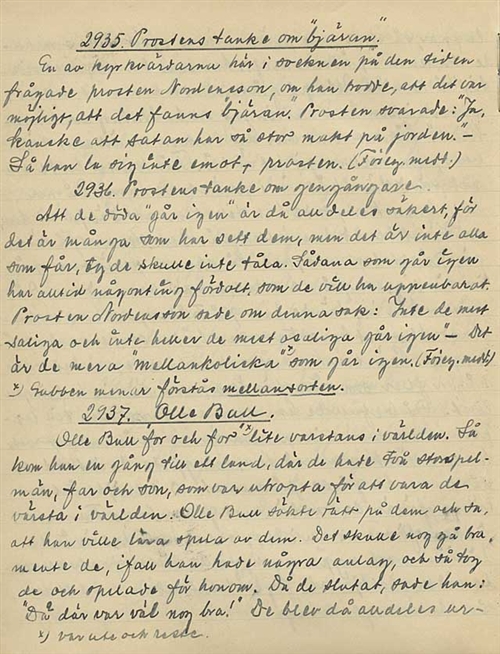 2935. Prostens tanke om "bjäran".
En av kyrkvärdarna här i socknen på den tiden
frågade prosten Nordensson, om han trodde, att det var
möjligt, att det fanns "bjäran". Prosten svarade: "Ja,
kanske att satan har så stor makt på jorden. –
Så han la sig inte emot, prosten. (Föreg. medd.)
2936. Prostens tanke om gengångare.
Att de döda "går igen" är då alldeles säkert, för
det är många som har sett dem, men det är inte alla
som får, ty de skulle inte tåla. Sådana som går igen
har alltid någonting fördolt, som de vill ha uppenbarat.
Prosten Nordensson sade om denna sak: Inte de mest
saliga och inte heller de mest osaliga går igen" – Det
är de mera "mellankoliska" x) som går igen. (Föreg. medd.)
x) Gubben menar förstås mellansorten.
2937. Olle Bull.
Olle Bull "for och for" x) lite varstans i världen. Så
kom han en gång till ett land, där de hade två storspel-
män, far och son, som var utropta för att vara de
värsta i världen. Olle Bull sökte rätt på dem och sa,
att han ville lära spela av dem. Det skulle nog gå bra,
mente de, ifall han hade några anlag, och så tog
de och spelade för honom. Då de slutat, sade han:
"Då där var väl nog bra!" De blev då alldeles ur-
x) var ute och reste.